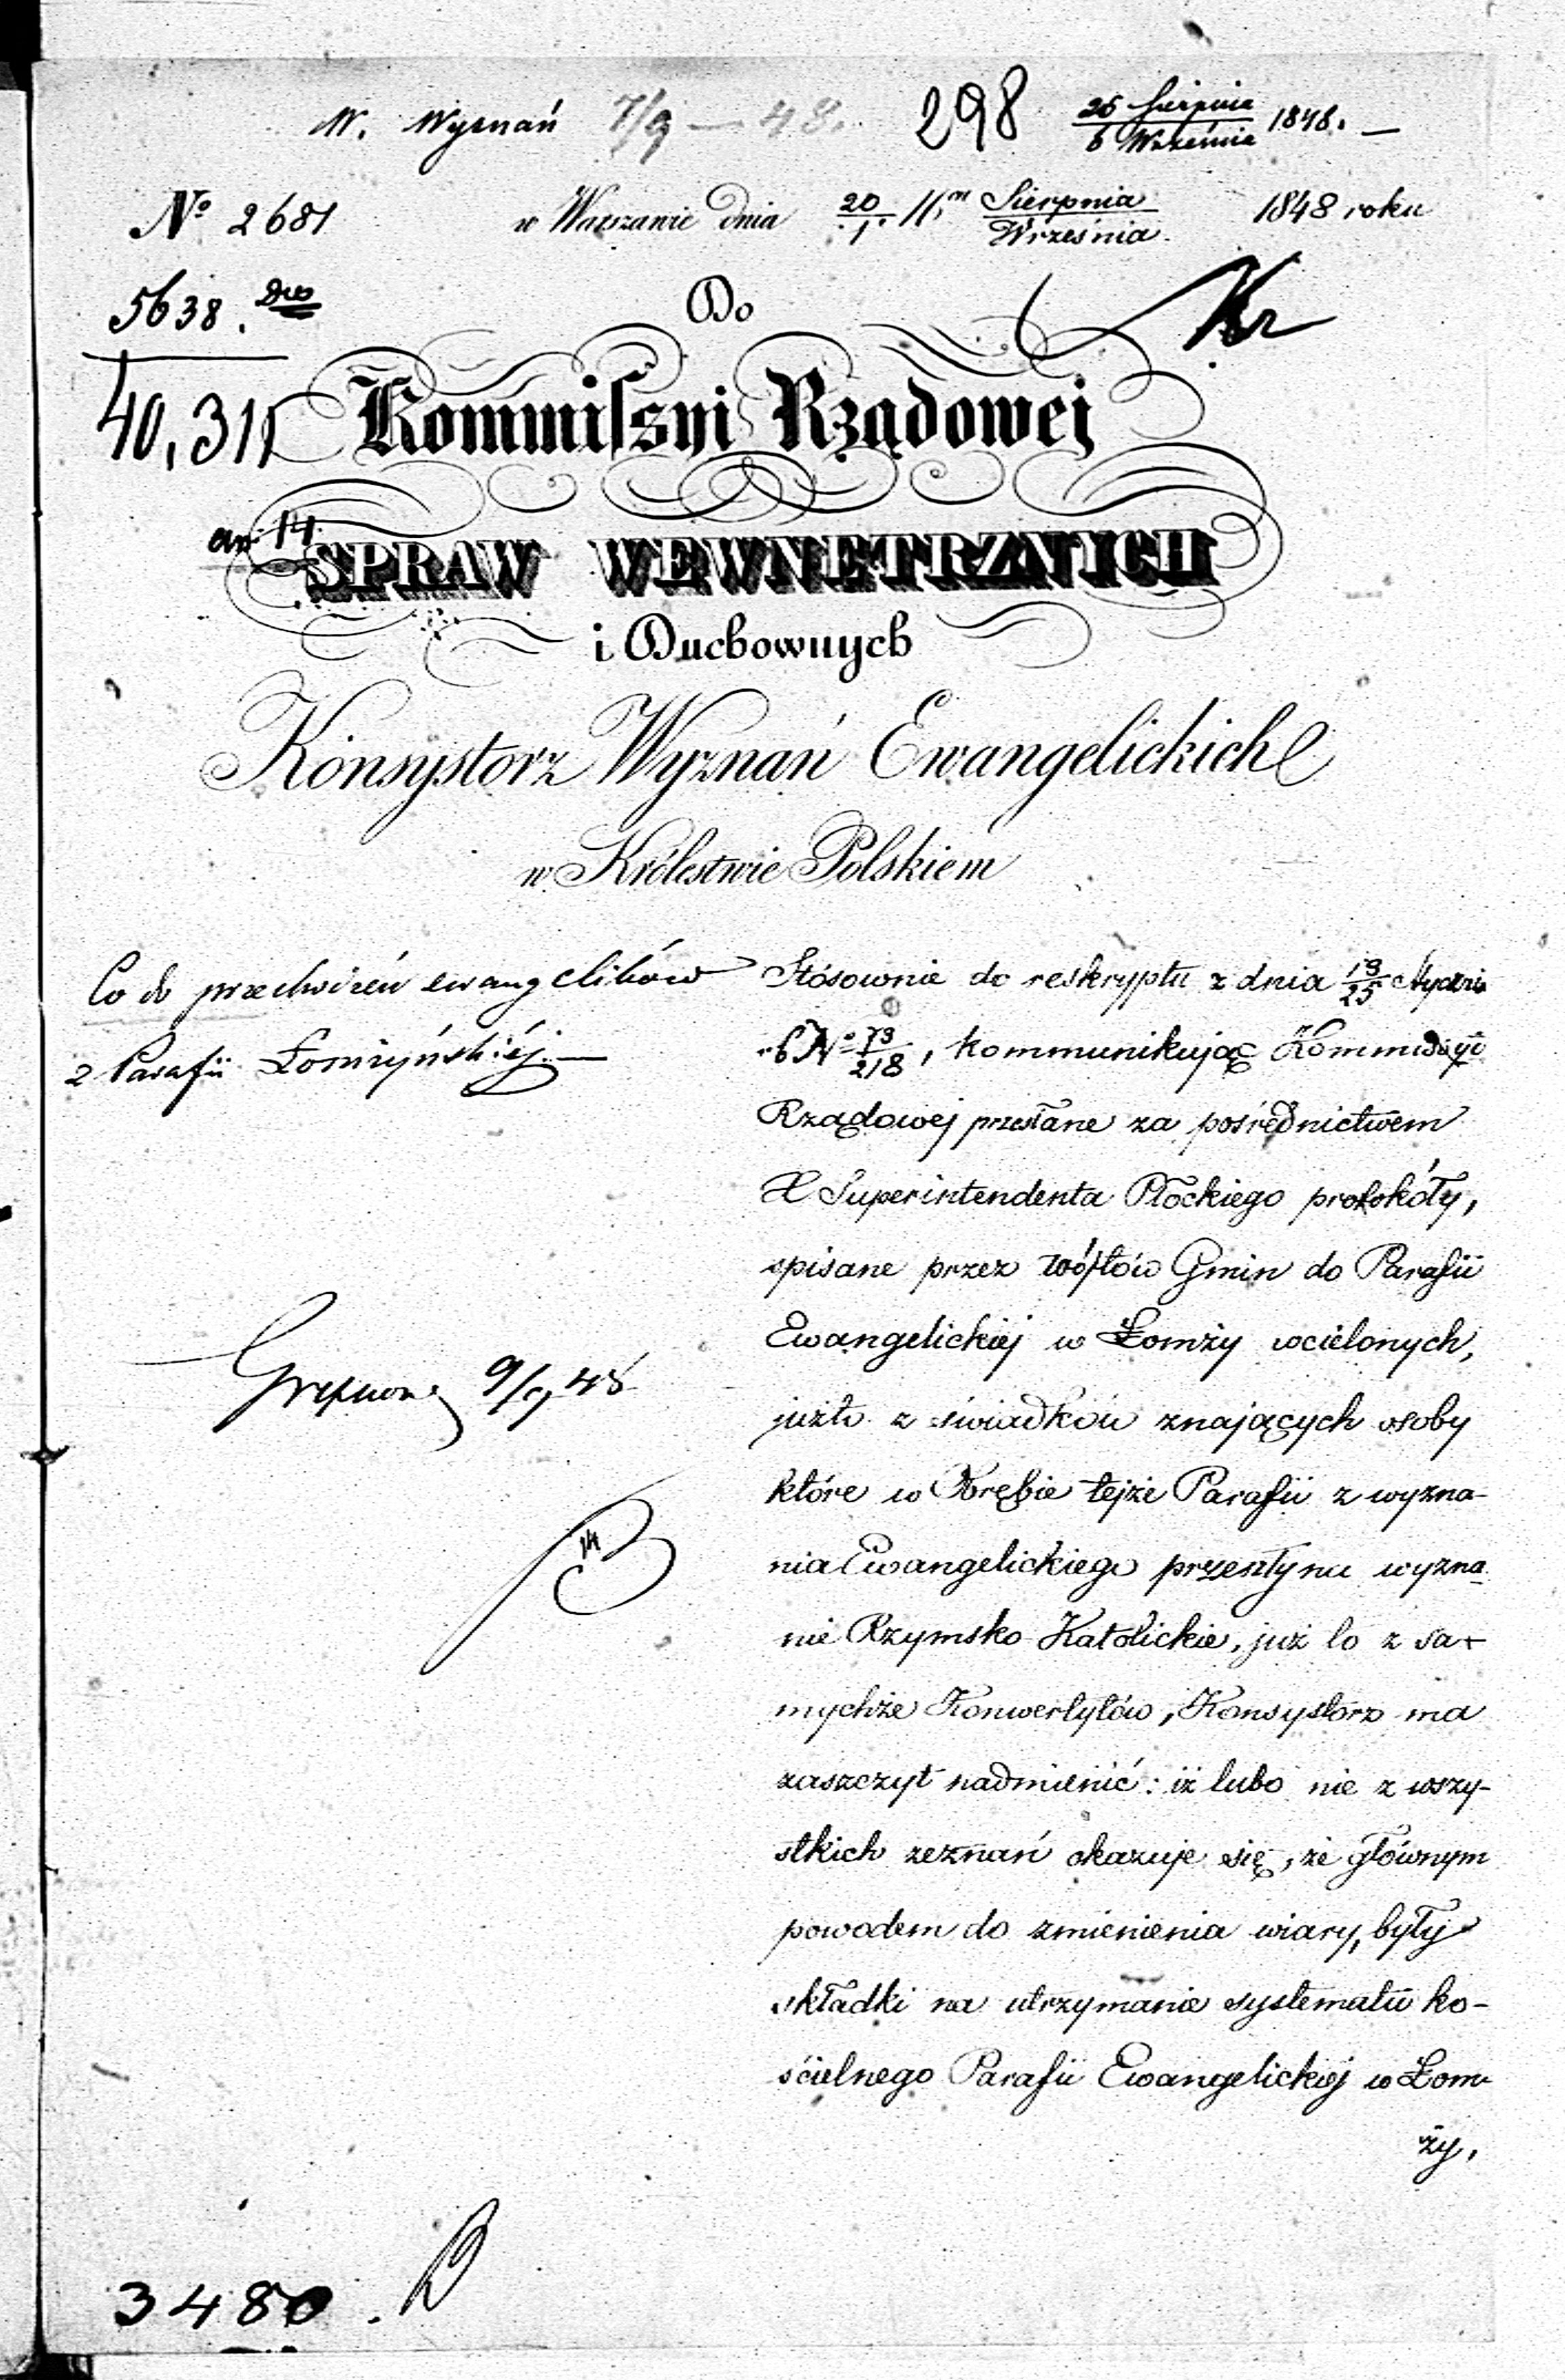 W. Wyznań 7/9 — 48. 298 25 Sierpnia / 6 Września 1848. —
Nº 2681 w Warszawie dnia 20/1 Sierpnia / Września 1848 roku
5638.
Do
40,311 Kommissyi Rządowej
14.
SPRAW WEWNĘTRZNYCH
i Duchownych
Konsystorz Wyznań Ewangelickich
w Królestwie Polskiem
Co do przechrzczeń ewangelików
z Parafii Łomżyńskiéj. —
Stósownie do reskryptu z dnia 13/25 Stycznia
r b Nº 73/218, kommunikując Kommissyi
Rządowej przesłane za pośrednictwem
X Superintendenta Płockiego protokóły,
spisane przez wójtów Gmin do Parafii
Ewangelickiej w Łomży wcielonych,
9/9 48
już to z świadków znających osoby
które w Obrębie tejże Parafii z wyzna-
nia Ewangelickiego przeszły na wyzna-
14
nie Rzymsko Katolickie, już to z sa-
mychże Konwertytów, Konsystorz ma
zaszczyt nadmienić: iż lubo nie z wszy-
stkich zeznań okazuje się, że głównym
powodem do zmienienia wiary, były
składki na utrzymanie systematu ko-
ścielnego Parafii Ewangelickiej w Łom-
ży,
3480.